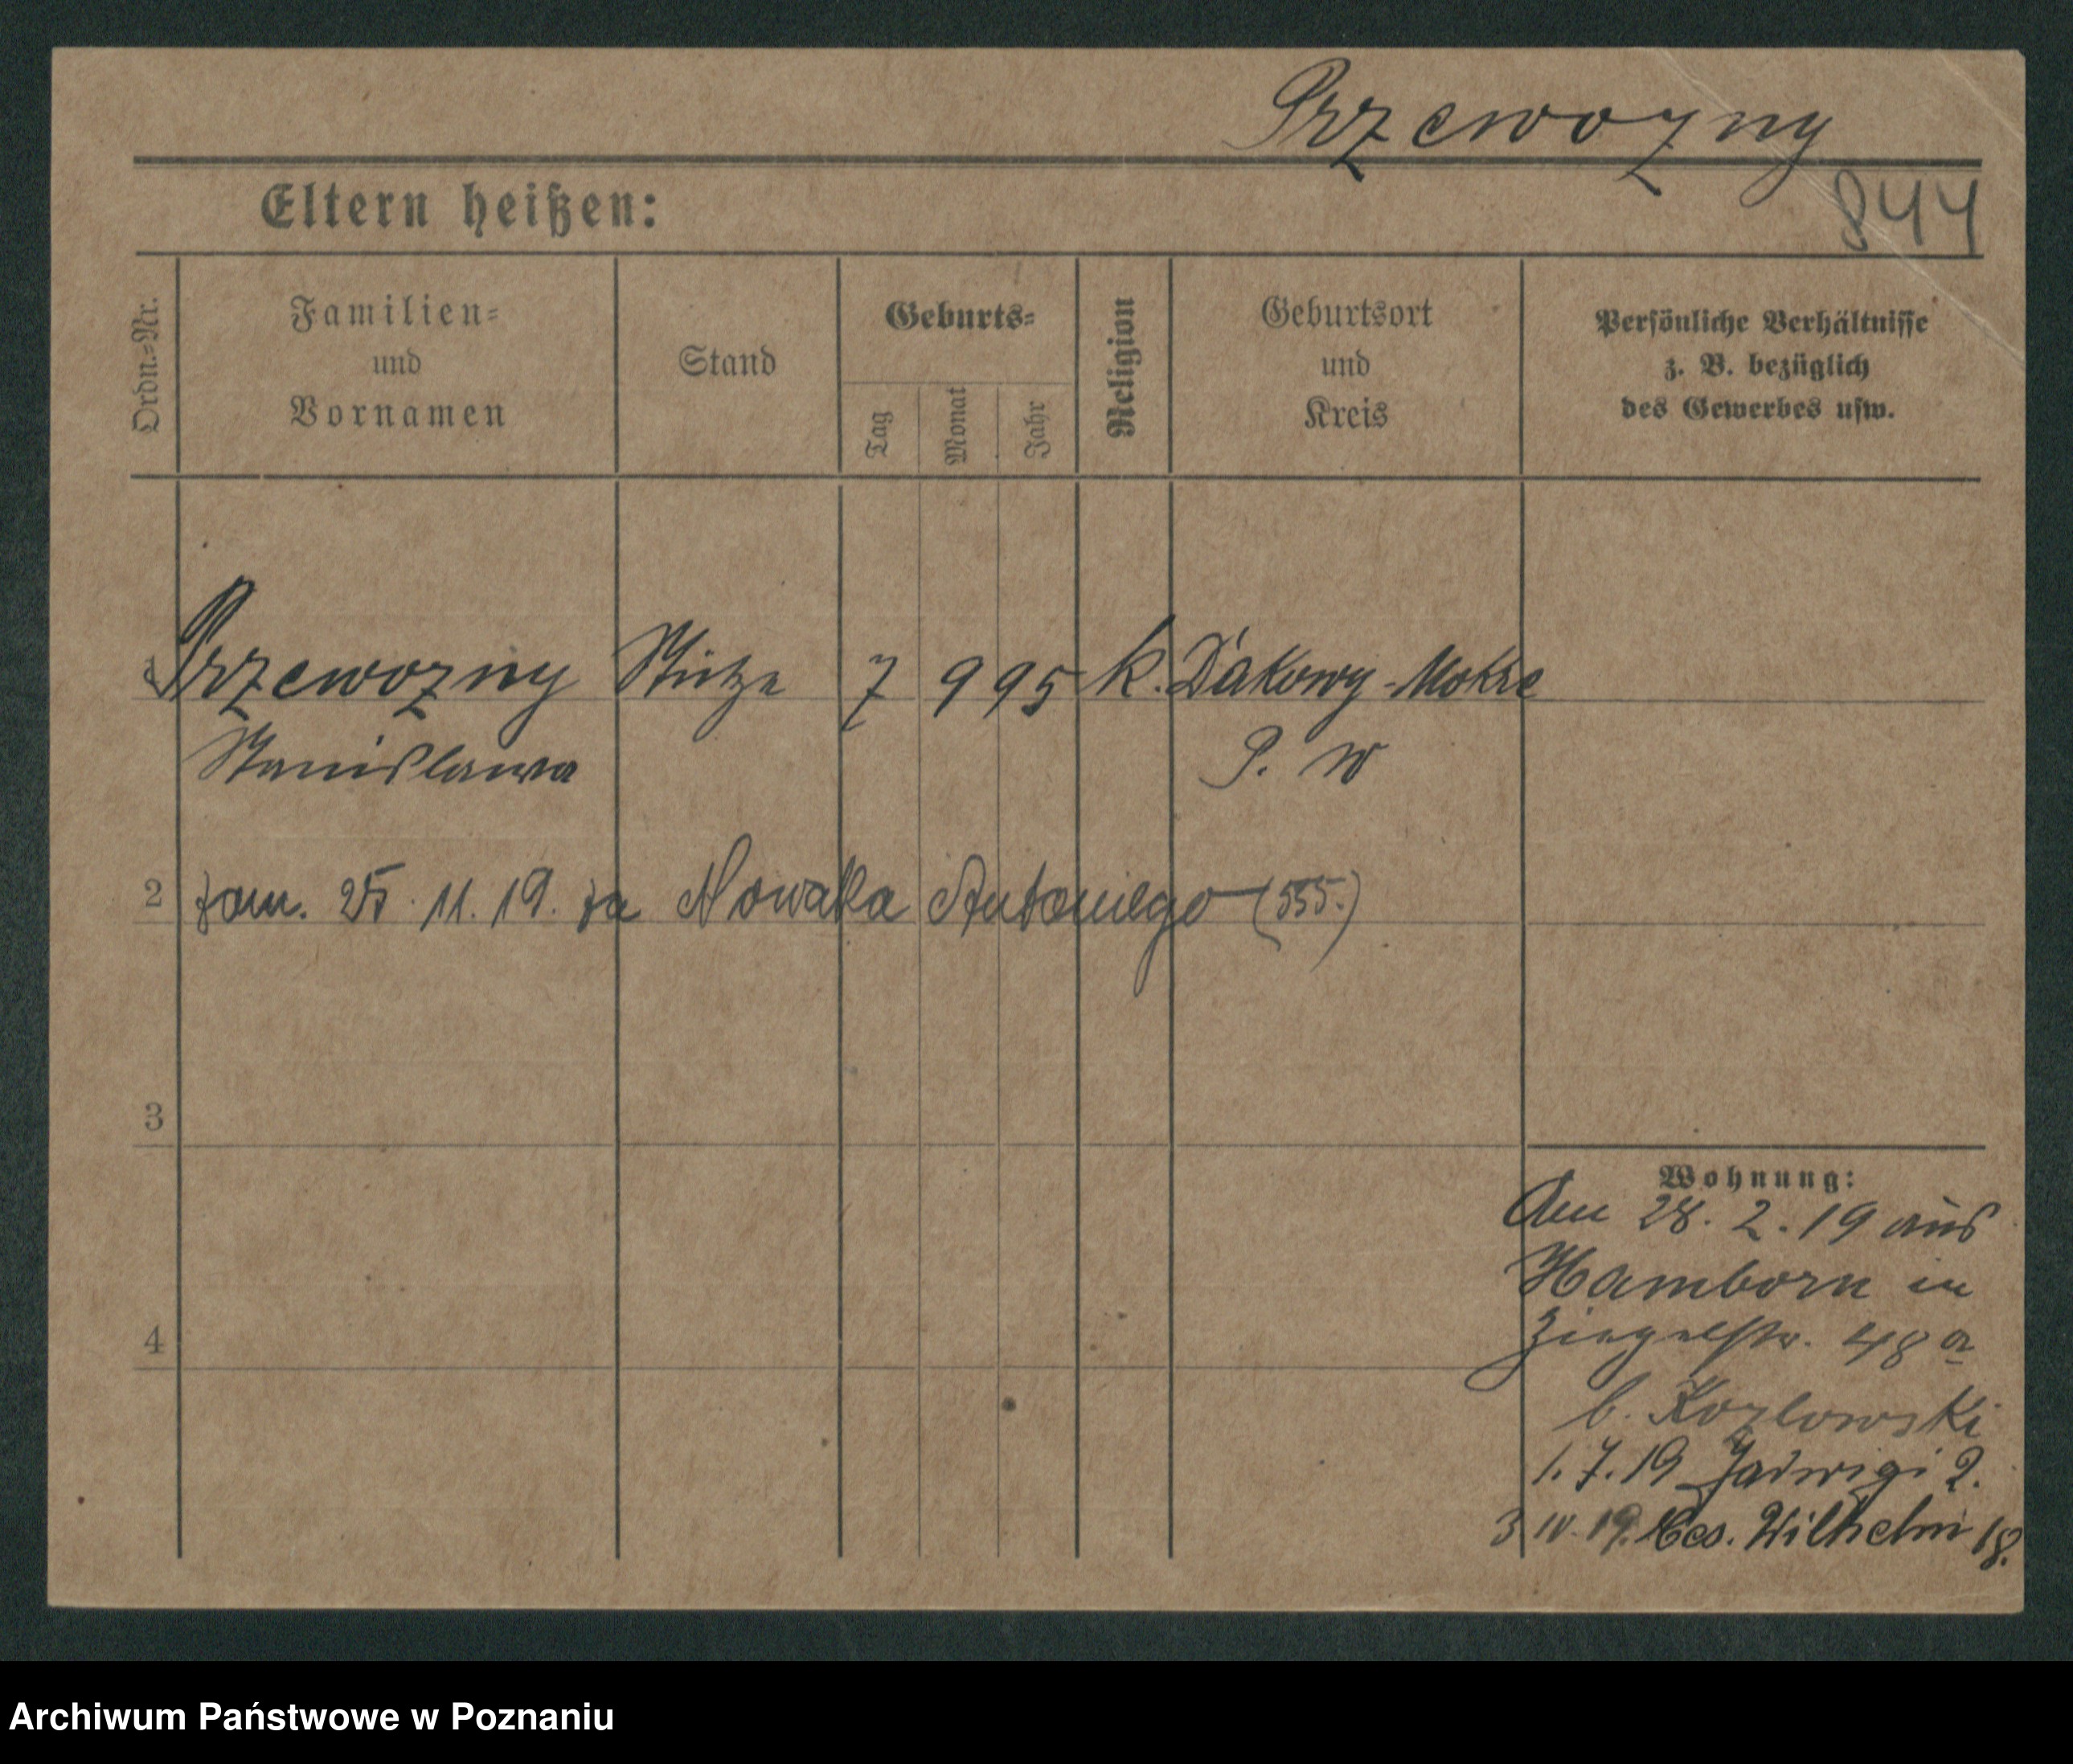 Przewozny
844
Eltern heißen:
Ordn.-Nr.
Familien-
und
Vornamen
Stand
Geburts-
Tag
Monat
Jahr
Religion
Geburtsort
und
Kreis
Persönliche Verhältnisse
z. B. bezüglich
des Gewerbes usw.
1 Przewozny Stütze 7 9 95 k. Dakowy-Mokre
Stanislawa P. W
2 zam. 25. 11. 19. za Nowaka Antoniego (555.)
3
Wohnung:
Am 28. 2. 19 aus
Hamborn in
4 Ziegelstr. 48 a
b. Kozlowski
1. 7. 19 Jadwigi 2.
3 IV. 19. Ces. Wilhelm 18.
Archiwum Państwowe w Poznaniu